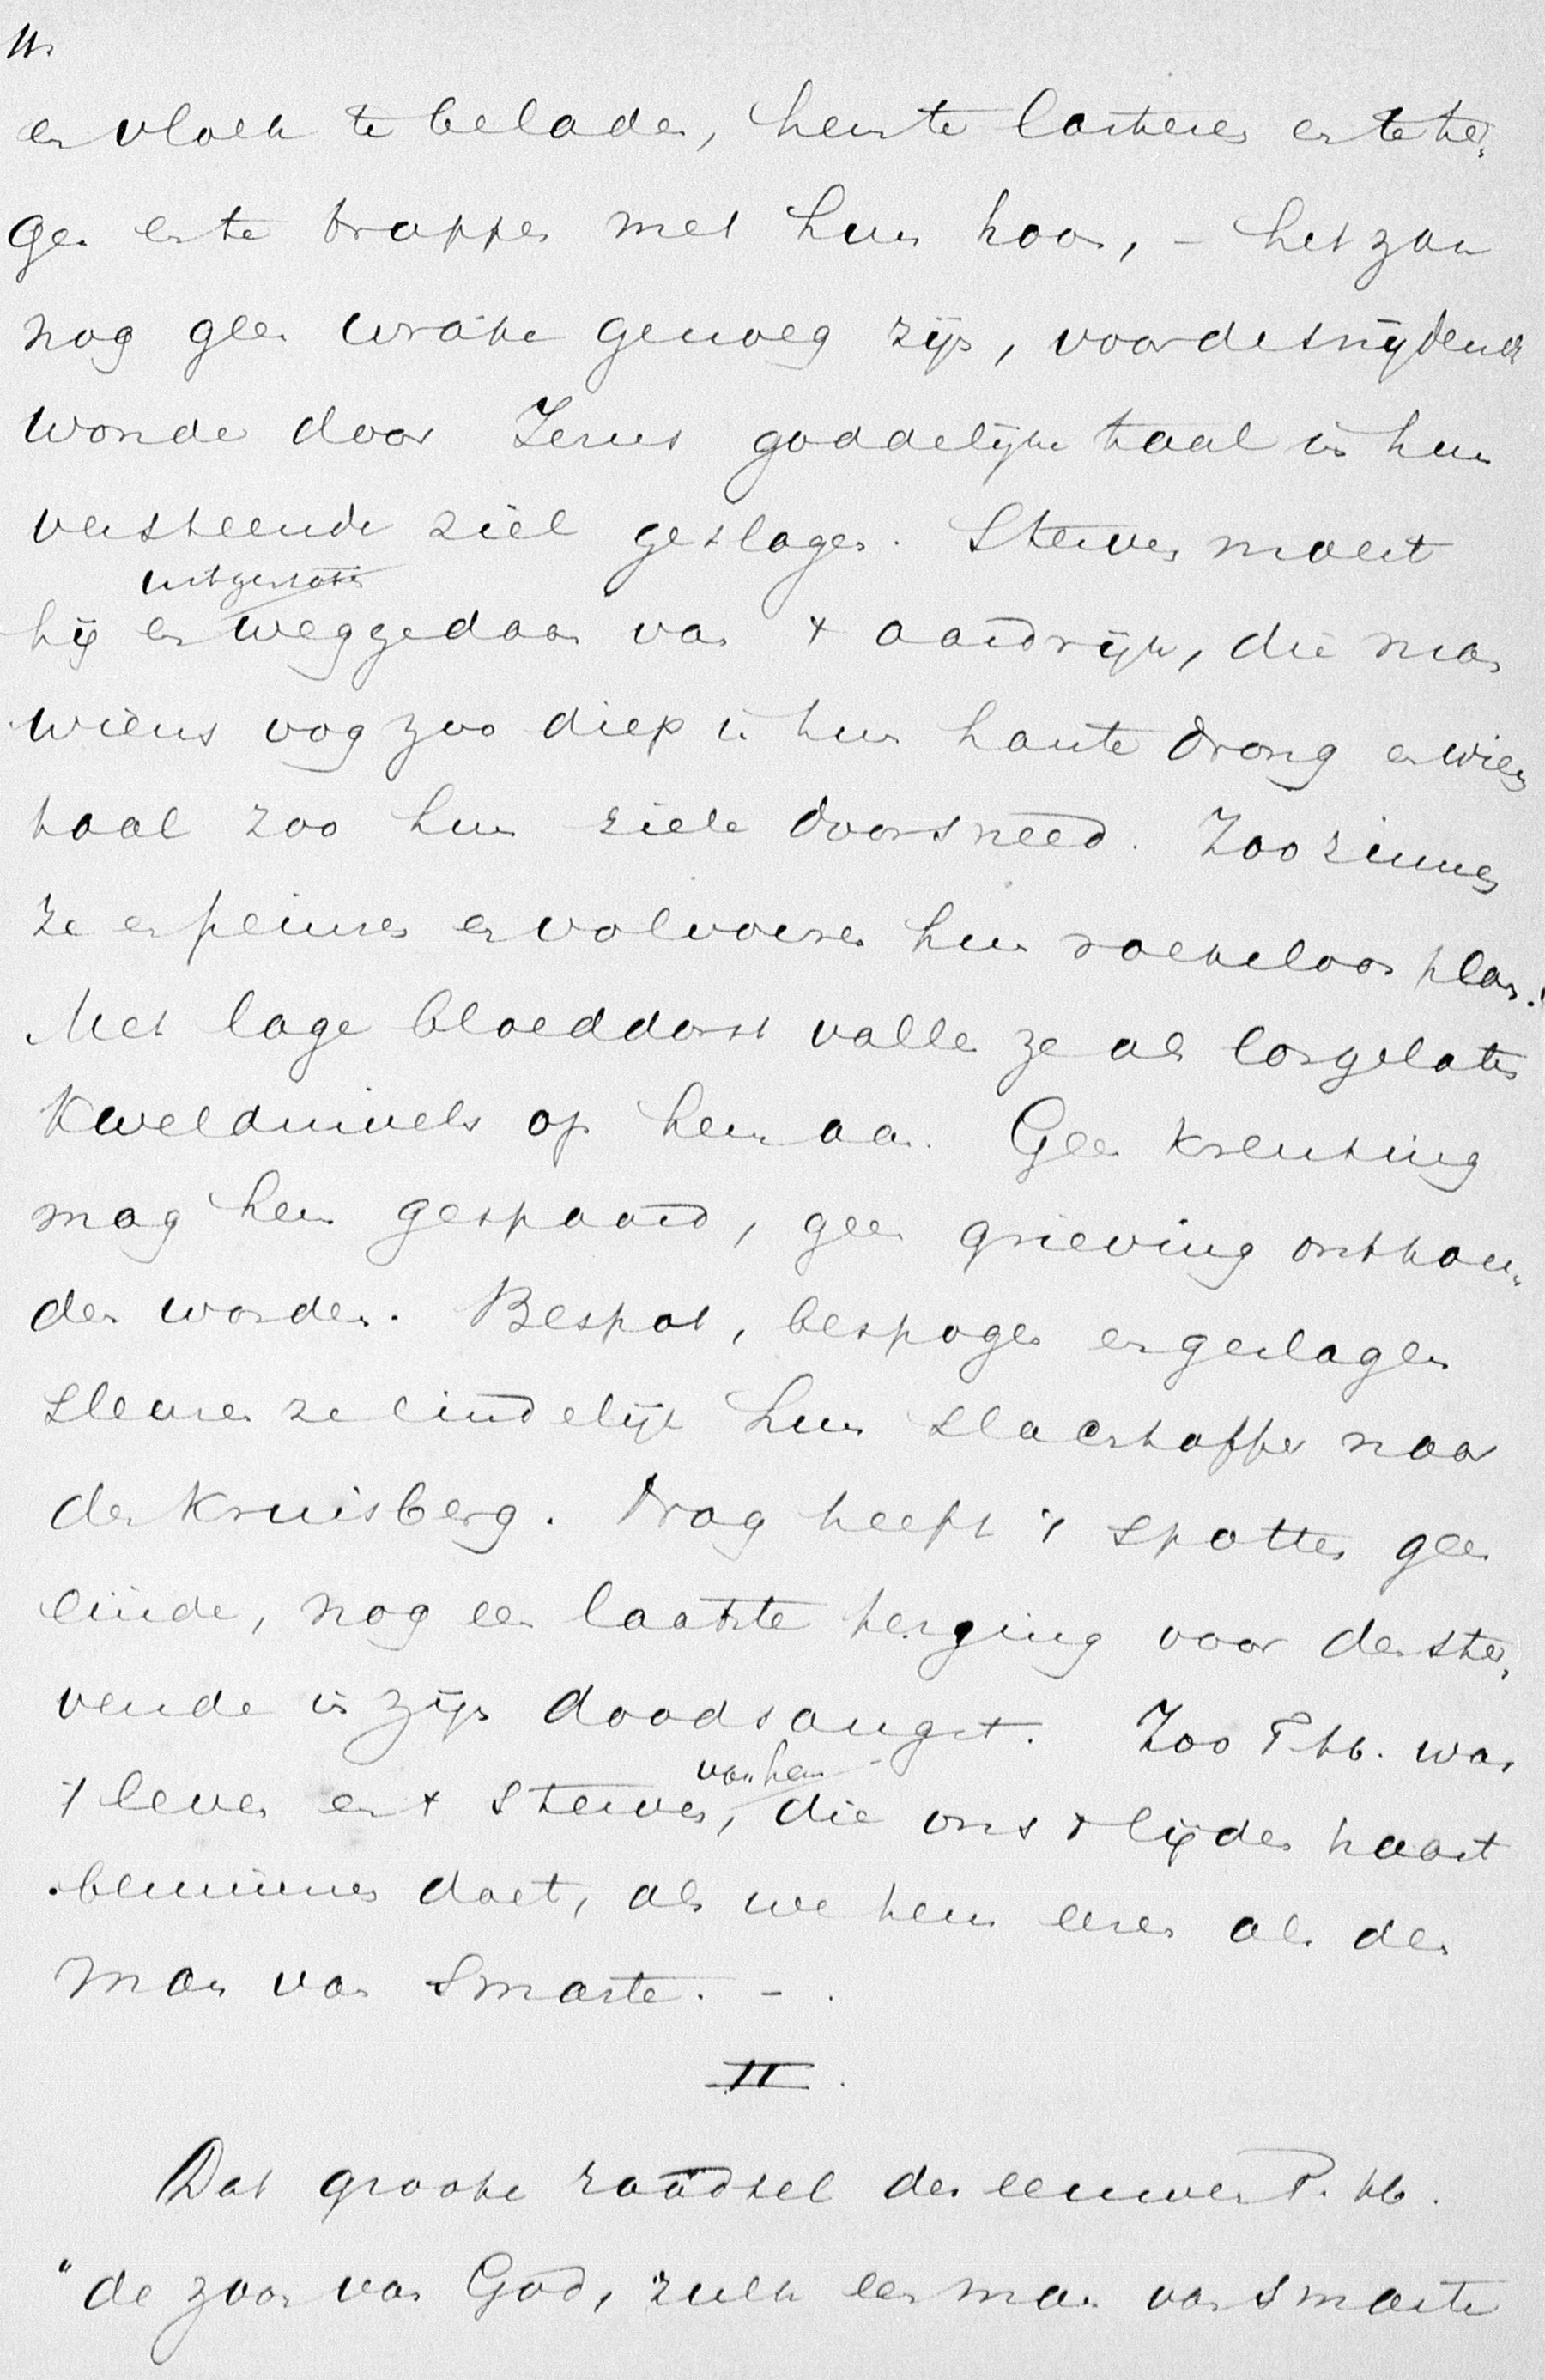 11.
en vloek te beladen, hem te lasteren en te ter-
gen en te trappen met hun hoon, - het zou
nog geen wrake genoeg zijn, voor de snijdende
wonde door Jezus goddelijke taal in hun
versteende ziel geslagen. Sterven moest
uitgestooten
hij en weggedaan van 't aardrijk, die man
wiens oog zoo diep in hun harte drong en wiens
taal zoo hun ziele doorsneed. Zoo zinnen
ze en peinzen en volvoeren hun roekeloos plan.
Met lage bloeddorst vallen ze als losgelaten
kwelduivels op hem aan. Geen krenking
mag hem gespaard, geen grieving onthou-
den worden. Bespot, bespogen en geslagen
sleuren ze eindelijk hun slachtoffer naar
den kruisberg. Nog heeft 't spotten geen
einde, nog een laatste terging voor den ster-
vende in zijn doodsangst. Zoo T. hb. was
van hem
't leven en 't sterven, die ons 't lijden haast
beminnen doet, als we hem eeren als den
man van Smarte. - .
II.
Dat groote raadsel der eeuwen T. hb.
"de zoon van God, zulk een man van smarte